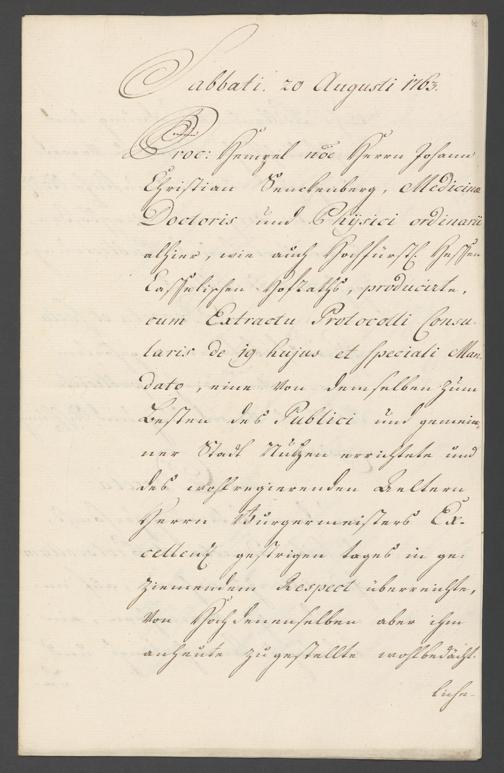 Sabbati. 20 Augusti 1763.
Proc: Hempel nõe Herrn Johann
Christian Senckenberg, Medicinæ
Doctoris und Physici ordinarii
alhier, wie auch Hochfürstl. Hessen
Casselischen Hofraths, producirte,
cum Extractu Protocolli Consu-
laris de 19 hujus et speciali Man-
dato, eine von demselben zum
Besten des Publici und gemei-
ner Stadt Nutzen errichtete und
des wohlregierenden Aeltern
Herrn Burgermeisters Ex-
cellenz gestrigen tages in ge-
ziemendem Respect überreichte,
von Hochdenenselben aber ihm
anheute zugestellte wohlbedächt-
liche